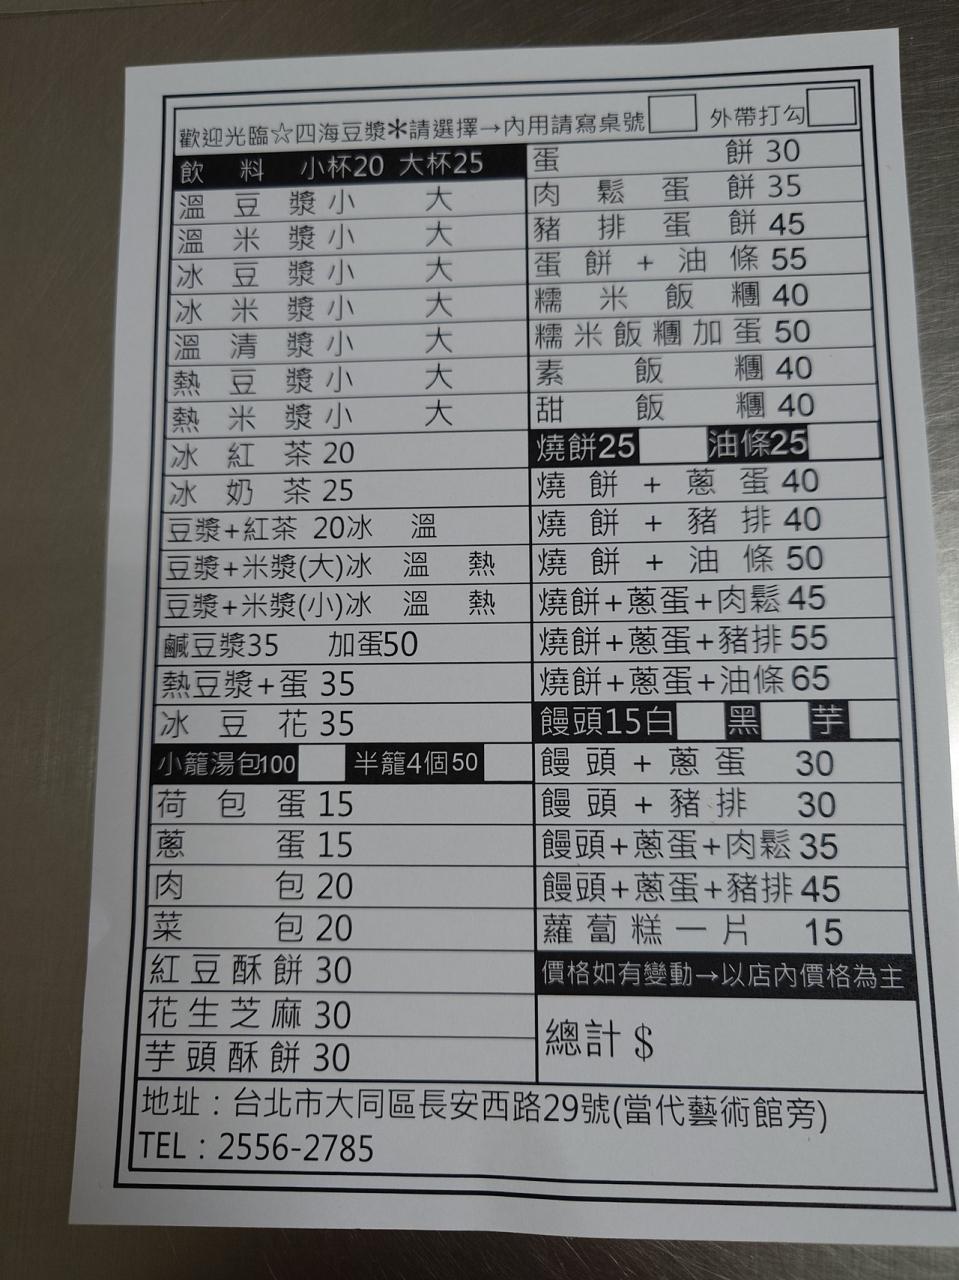 歡迎光臨☆四海豆漿＊請選擇→內用請寫桌號 外帶打勾
飲料 小杯20 大杯25
溫豆漿 小 大
溫米漿 小 大
冰豆漿 小 大
冰米漿 小 大
溫清漿 小 大
熱豆漿 小 大
熱米漿 小 大
冰紅茶 20
冰奶茶 25
豆漿+紅茶 20冰 溫
豆漿+米漿(大)冰 溫 熱
豆漿+米漿(小)冰 溫 熱
鹹豆漿35 加蛋50
熱豆漿+蛋 35
冰豆花 35
小籠湯包100 半籠4個50
荷包蛋 15
蔥蛋 15
肉包 20
菜包 20
紅豆酥餅 30
花生芝麻 30
芋頭酥餅 30
蛋餅 30
肉鬆蛋餅 35
豬排蛋餅 45
蛋餅+油條 55
糯米飯糰 40
糯米飯糰加蛋 50
素飯糰 40
甜飯糰 40
燒餅25 油條25
燒餅+蔥蛋 40
燒餅+豬排 40
燒餅+油條 50
燒餅+蔥蛋+肉鬆 45
燒餅+蔥蛋+豬排 55
燒餅+蔥蛋+油條 65
饅頭15白 黑 芋
饅頭+蔥蛋 30
饅頭+豬排 30
饅頭+蔥蛋+肉鬆 35
饅頭+蔥蛋+豬排 45
蘿蔔糕一片 15
價格如有變動→以店內價格為主
總計 $
地址：台北市大同區長安西路29號(當代藝術館旁)
TEL：2556-2785